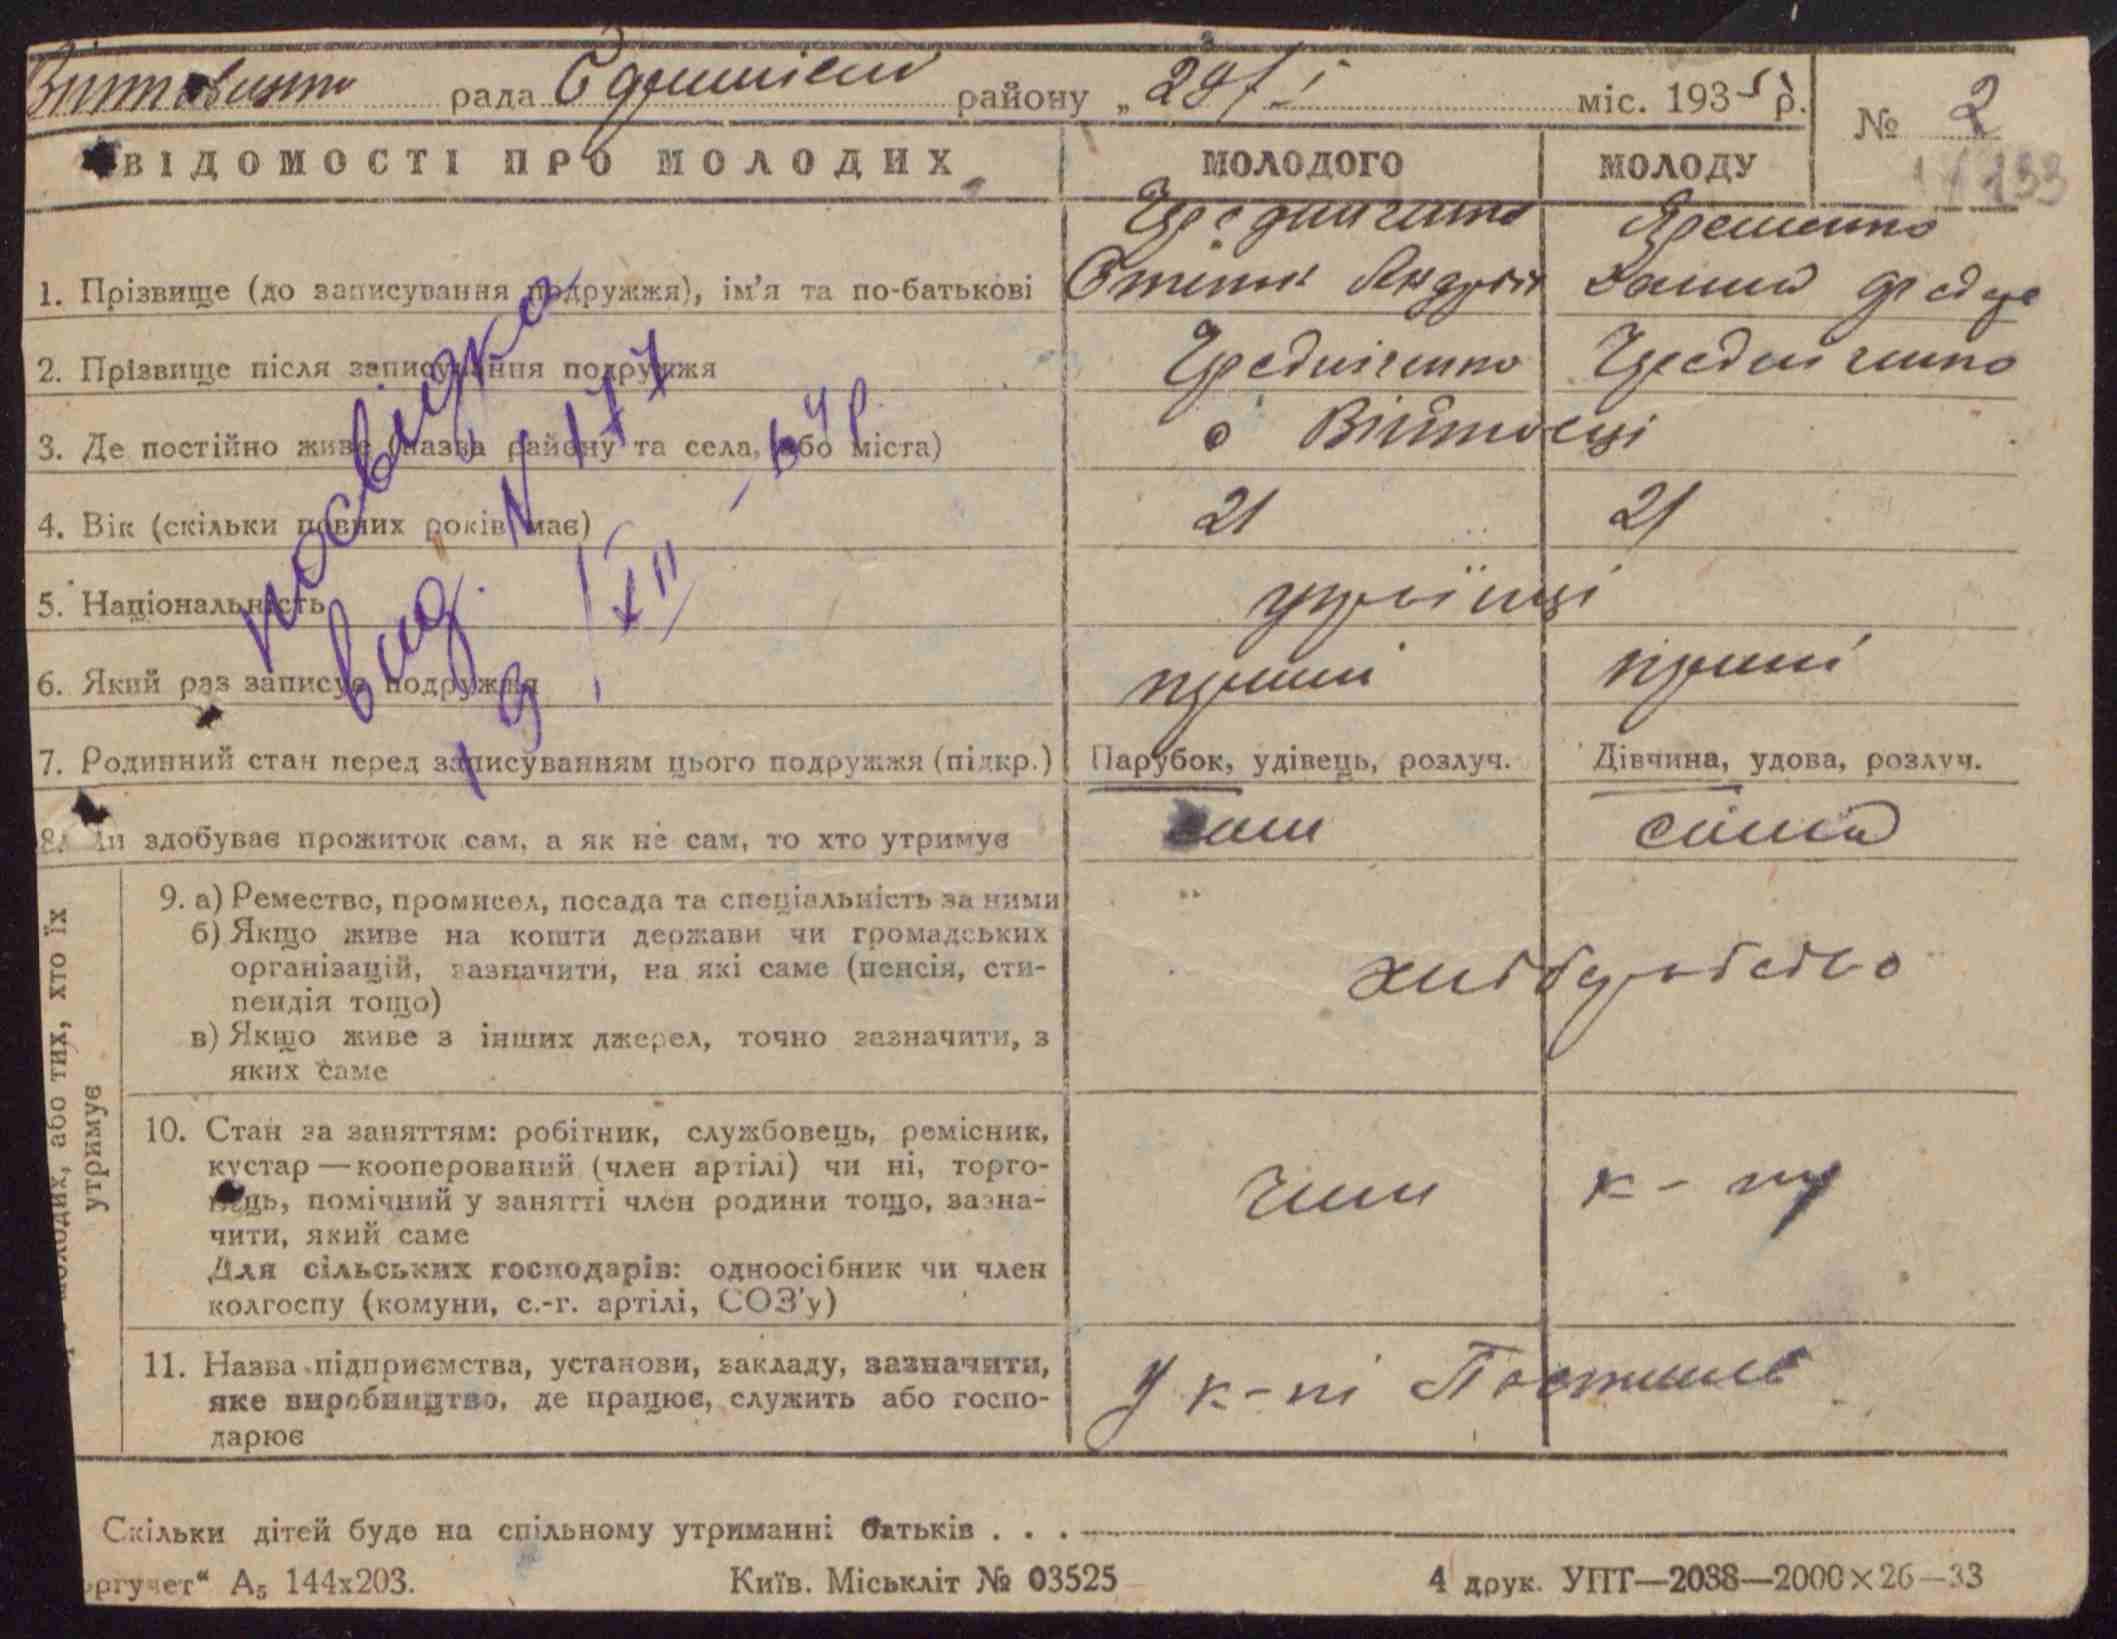 рада району „ 29/I міс. 1935 р.
№ 2
ВІДОМОСТІ ПРО МОЛОДИХ
МОЛОДОГО
МОЛОДУ
1. Прізвище (до записування подружжя), ім'я та по-батькові
2. Прізвище після записування подружжя
3. Де постійно живе (назва району та села, або міста)
с Війтовці
4. Вік (скільки повних років має)
21
21
5. Національність
українці
6. Який раз записує подружжя
перший
перший
7. Родинний стан перед записуванням цього подружжя (підкр.)
Парубок, удівець, розлуч.
Дівчина, удова, розлуч.
8. Чи здобуває прожиток сам, а як не сам, то хто утримує
сам
сама
молодих, або тих, хто їх
утримує
9. а) Ремество, промисел, посада та спеціальність за ними
б) Якщо живе на кошти держави чи громадських
організацій, зазначити, на які саме (пенсія, сти-
пендія тощо)
в) Якщо живе з інших джерел, точно зазначити, з
яких саме
хліборобство
10. Стан за заняттям: робітник, службовець, ремісник,
кустар — кооперований (член артілі) чи ні, торго-
вець, помічний у занятті член родини тощо, зазна-
чити, який саме
Для сільських господарів: одноосібник чи член
колгоспу (комуни, с.-г. артілі, СОЗ'у)
член к-пу
11. Назва підприємства, установи, закладу, зазначити,
яке виробництво, де працює, служить або госпо-
дарює
У к-пі
посвідка
вид. N 177
19 /XII – 64 р.
Скільки дітей буде на спільному утриманні батьків . . .
оргучет“ А5 144х203.
Київ. Міськліт № 03525
4 друк. УПТ—2038—2000×26—33